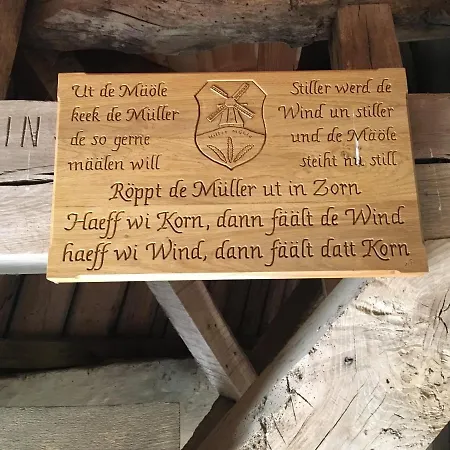 IN
Ut de Mäöle
keek de Müller
de so gerne
määlen will
Stiller werd de
Wind un stiller
und de Mäöle
steiht nu still
Röppt de Müller ut in Zorn
Haeff wi Korn, dann fäält de Wind
haeff wi Wind, dann fäält datt Korn